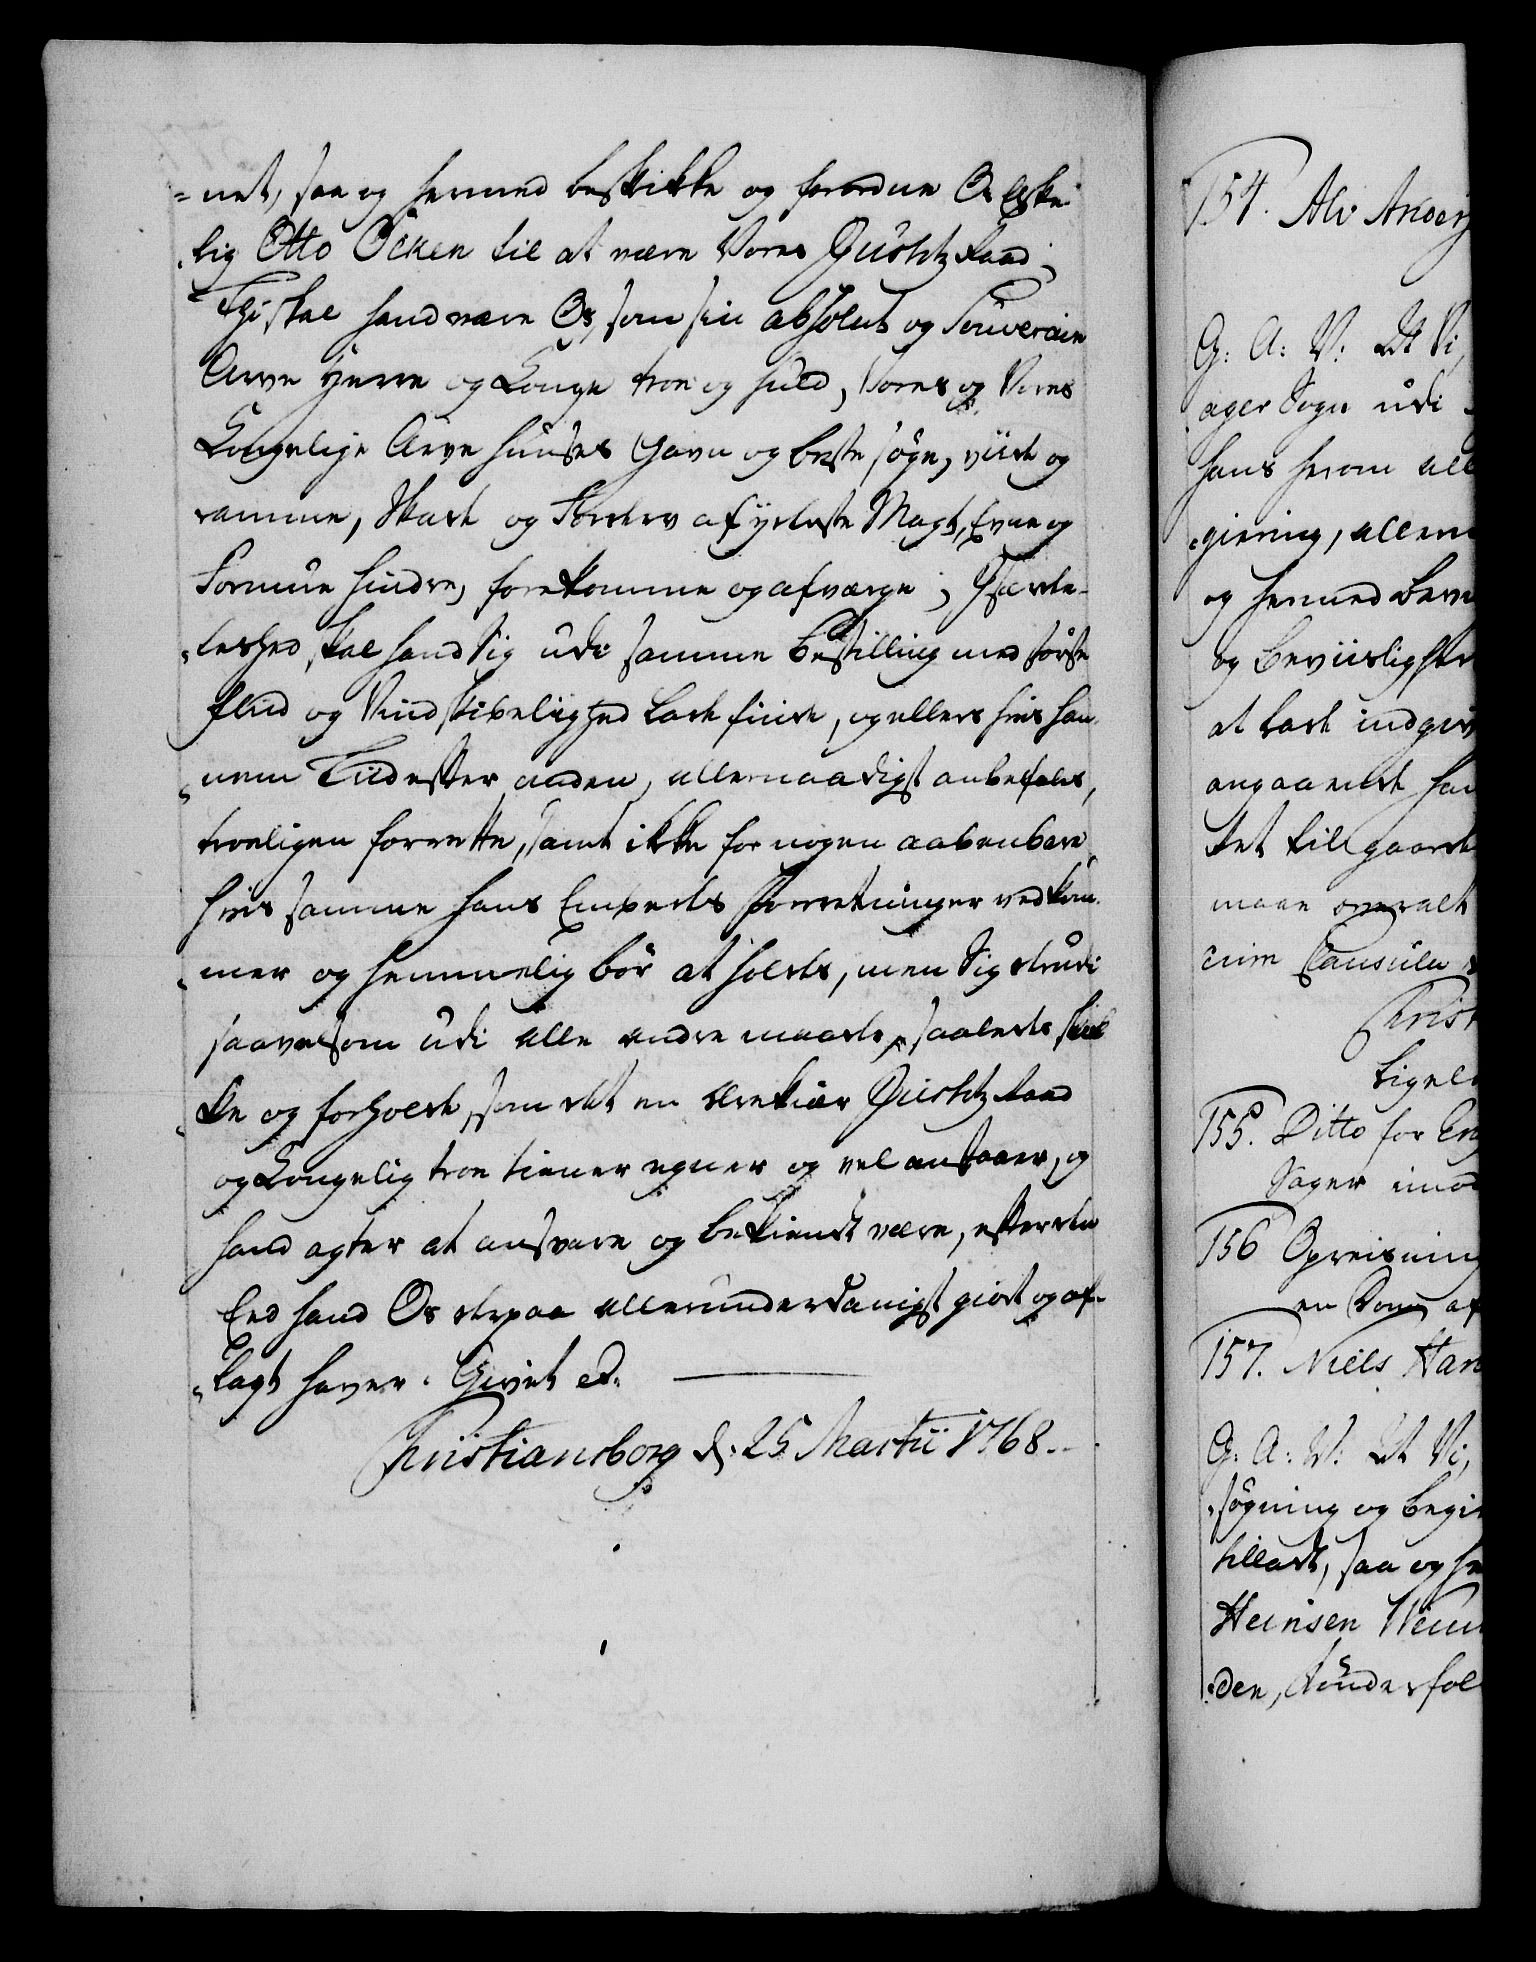 =net, saa og hermed beskikke og forordne Os Elske-
lig Otto Öcken til at være Vores Justitz Raad;
Thi skal hand være Os, som sin absolut og Souverain
Arve Herre og Konge troe og huld, Vores og Vores
Kongelige Arve Huuses Gavn og beste søge, viide og
ramme, Skade og Forderv af yderste Magt, Evne og
Formue hindre, forekomme og afværge; Jsærde-
leshed skal hand Sig udi samme Bestilling med største
Fliid og Vindskibelighed lade finde, og ellers hvis han-
nem Tiid efter anden, allernaadigst anbefales,
troeligen forrette, samt ikke for nogen aabenbare
hvis samme hans Embeds Forretninger vedkom-
mer og hemmelig bør at holdes, men Sig derudi
saavelsom udi alle andre maade, saaledes skik
ke og forholde, som det en ærekiær Justitz Raad
og Kongelig troe tiener egner og vel anstaaer, og
hand agter at ansvare og bekiendt være, efter den
Eed hand Os derpaa allerunderdanigst giort og af-
lagt haver. Givet etc.
Christiansborg d. 25 Martii 1768.
154. Alv Anders
G: A: V: At Vi,
ager Sogn udi
hans herom all
giering, allern
og hermed Beve
og Beviislighe
at lade indgiv
angaaende han
det tilgaard
maae overalt
cum Clausula
Christ
Ligele
155. Ditto for
Sager imod
156 Opreisning
en Dom af
157. Niels Han
G: A: V: At Vi,
søgning og begie
tilladt, saa og he
Heinsen
den,